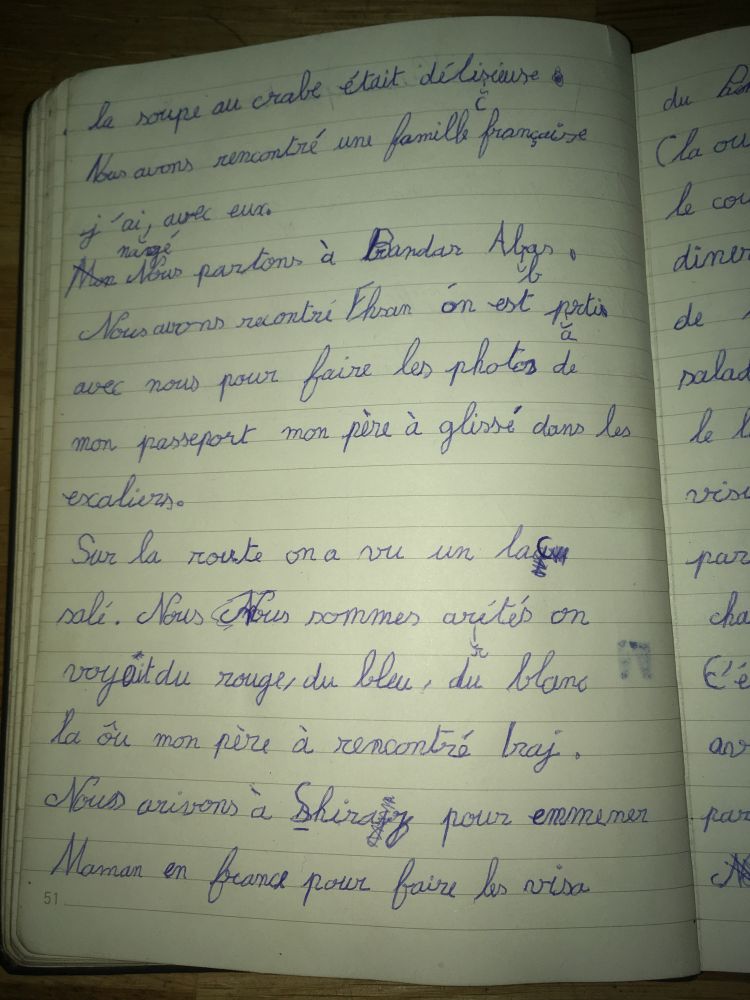 la soupe au crabe était délisieuse.
c
Nous avons rencontré une famille française
j'ai, avec eux.
nargé
Nous partons à Bandar Abas.
b
Nous avons recontré Ehsan on est prtis
a
avec nous pour faire les photos de
mon passeport mon père à glissé dans les
excaliers.
Sur la route on a vu un lac
salé. Nous Nous sommes arêtés on
r
voyait du rouge, du bleu, du blanc
la ôu mon père à rencontré Iraj.
Nous arivons à Shiraz pour emmener
Maman en france pour faire les visa
51
du
(la ou
le cou
dîner
de
salad
le l
visi
par
cha
C'é
av
par